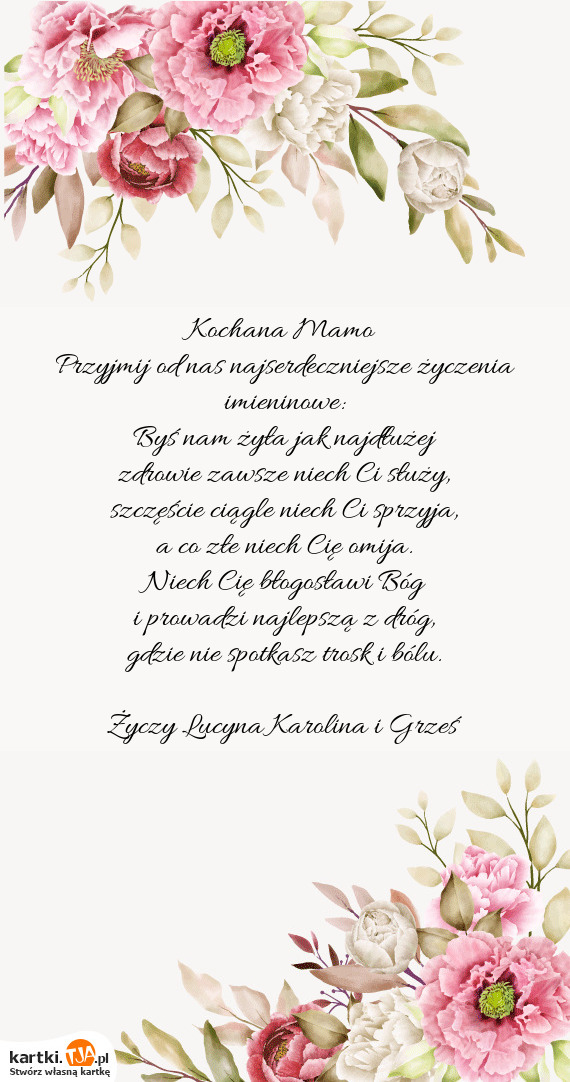 Kochana Mamo
Przyjmij od nas najserdeczniejsze życzenia
imieninowe:
Byś nam żyła jak najdłużej
zdrowie zawsze niech Ci służy,
szczęście ciągle niech Ci sprzyja,
a co złe niech Cię omija.
Niech Cię błogosławi Bóg
i prowadzi najlepszą z dróg,
gdzie nie spotkasz trosk i bólu.
Życzy Lucyna Karolina i Grześ
kartki.TJA.pl
Stwórz własną kartkę